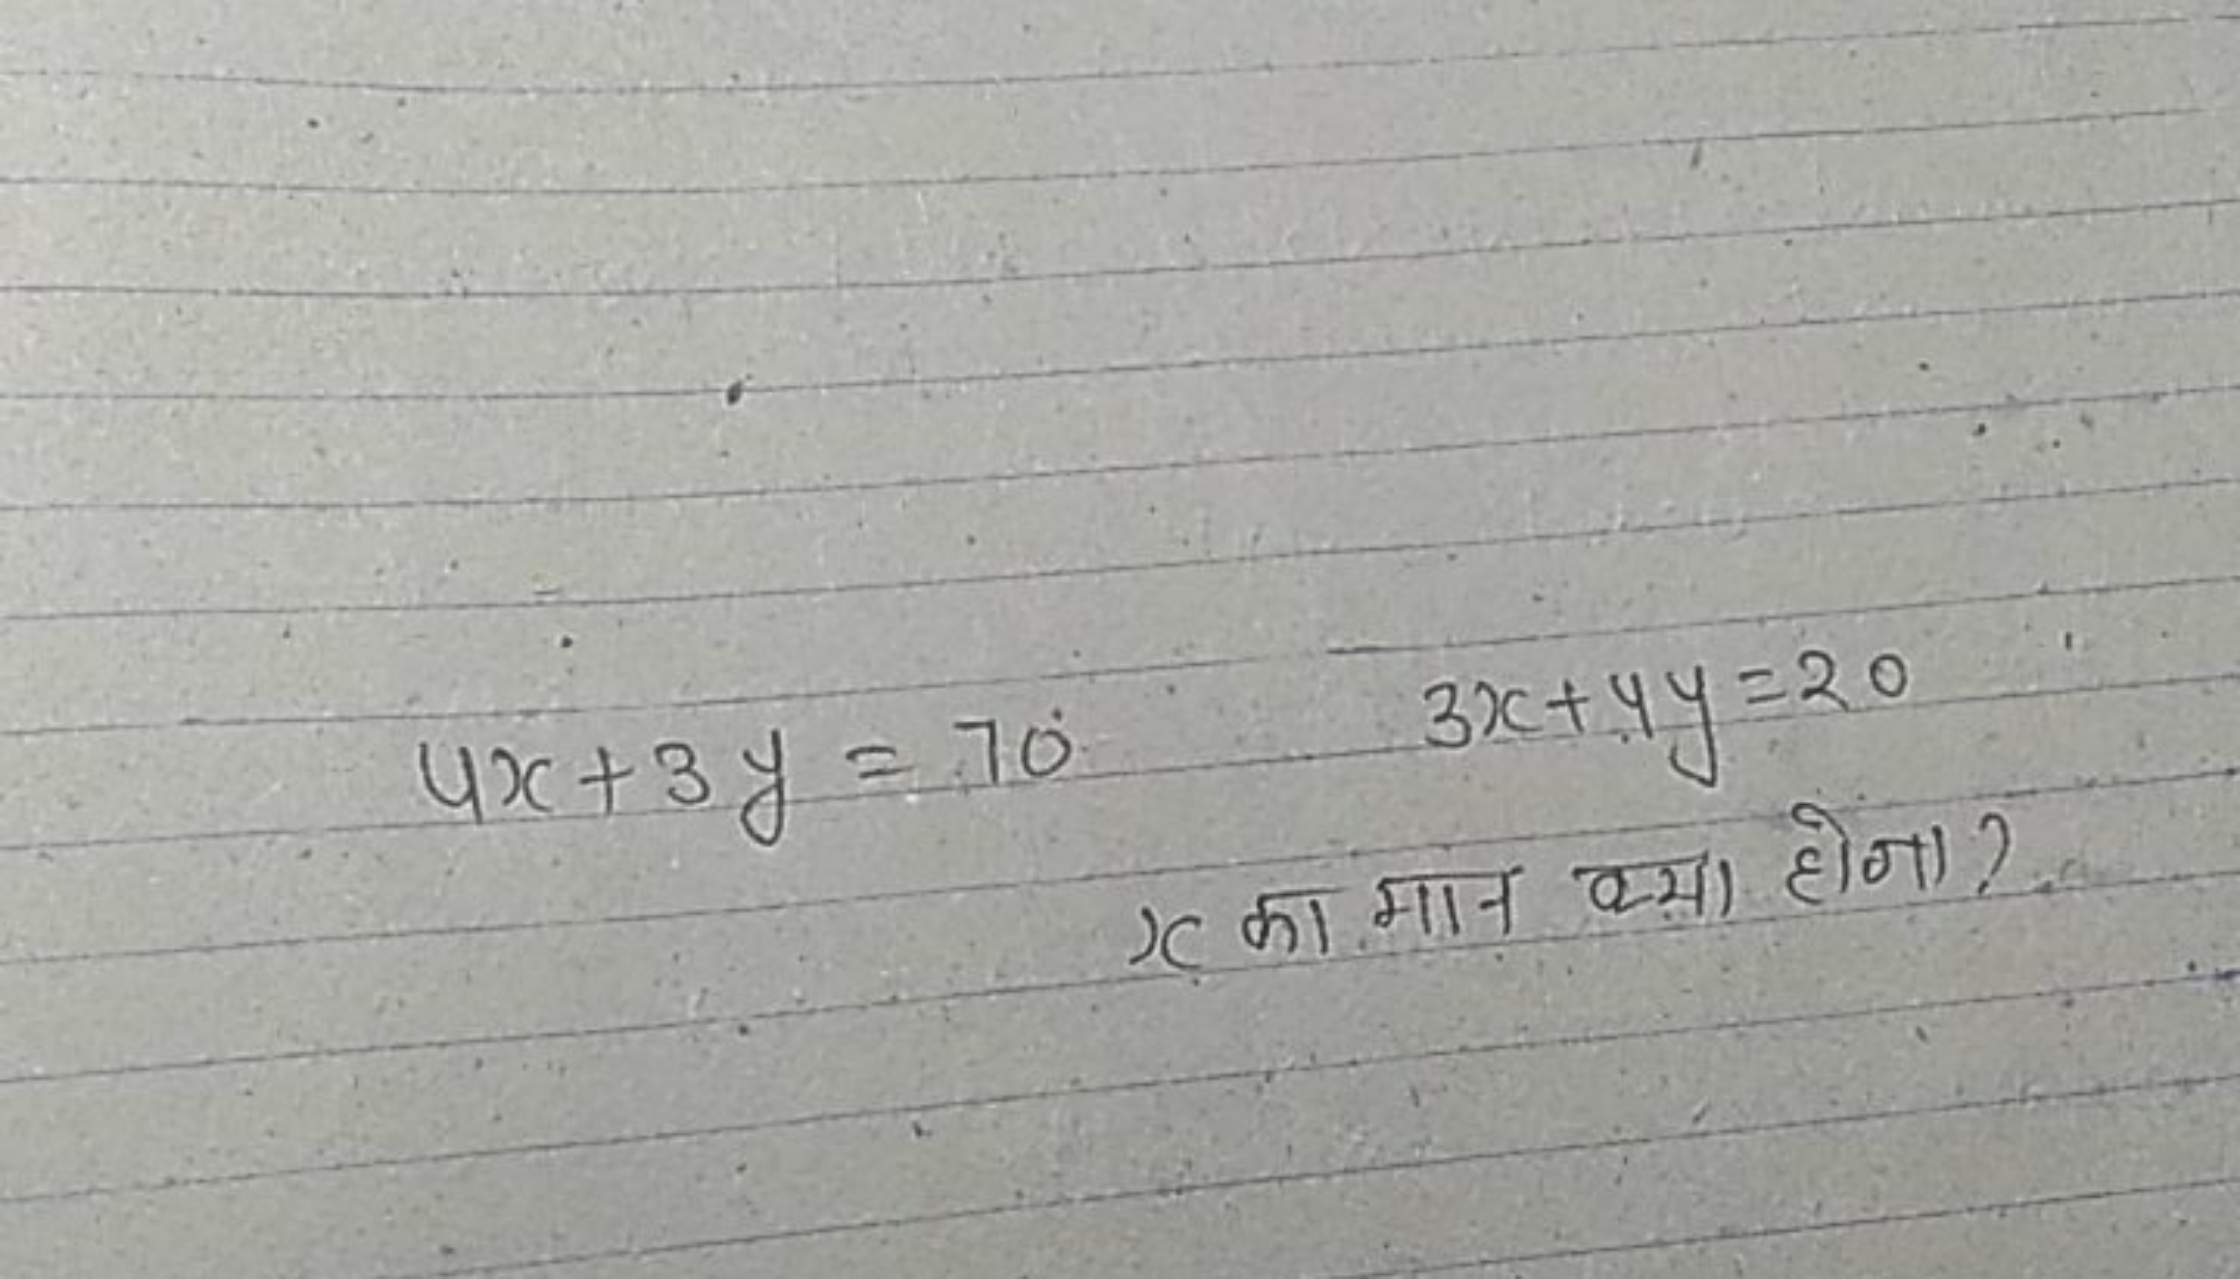 4x+3y = 70 3x+4y=20
x का मान क्या होगा?